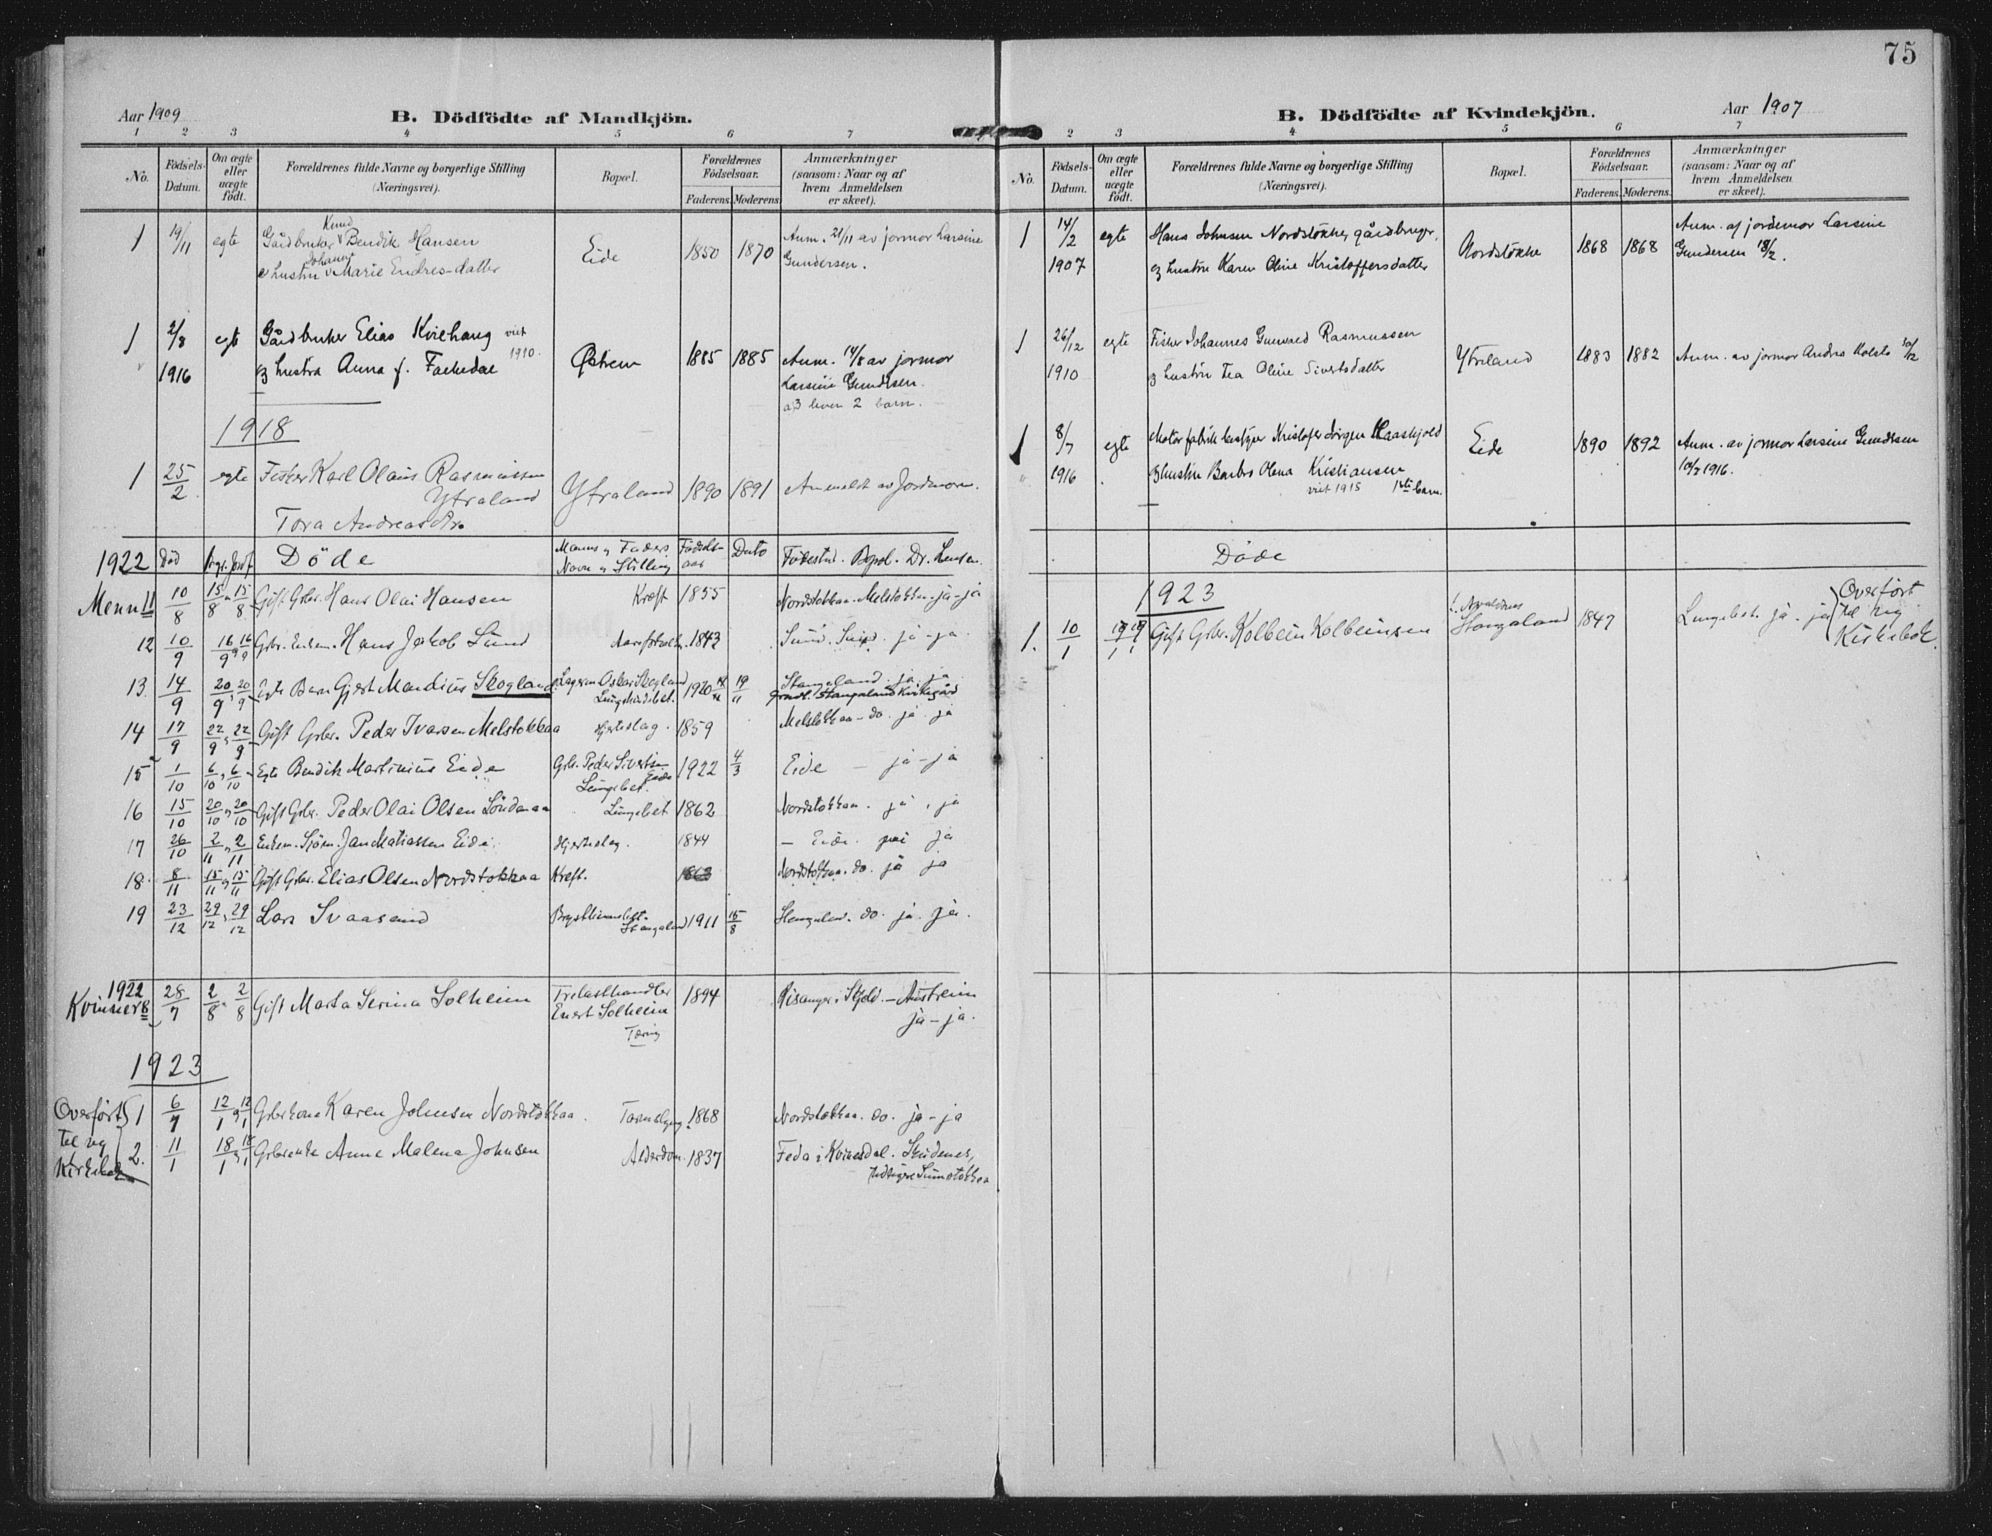 75
Aar 1909
B. Dödfödte af Mandkjön.
1 2 3 4 5 6 7
No. Födsels-Datum. Om ægte eller uægte født. Forældrenes fulde Navne og borgerlige Stilling (Næringsvei). Bopæl. Forældrenes Födselsaar. Faderens. Moderens. Anmærkninger (saasom: Naar og af hvem Anmeldelsen er skeet).
1 19/11 egte Gårdbruker Knud Bendik Hansen Eide 1850 1870 Anm. 21/11 av jormor Larsine
hustru Johanne Marie Endres-datter Gundersen.
1 2/8 egte Gårdbruker Elias Kvilhaug viet Østrem 1885 1885 Anm. 14/8 av jormor
1916 og hustru Anna f. Fackedal 1910. Larsine Gundersen.
a) 3 b) lever 2 barn.
1918
1 25/2 egte Fisker Karl Olaus Rasmussen Ytraland 1890 1891 Anmeldt av Jordmoren.
Ytraland
Tora Andreasdtr.
1922 Død Døde Manns og Faders Navn og Stilling Fødsels-aar Dato Fødested. Bopel. Dr.
Menn 11 10/8 15/8 15/8 Gift Grbr. Hans Olai Hansen Kreft 1855 Nordstokkaa. Melstokka. ja-ja
12 10/9 16/9 16/9 Grbr. Enkem. Hans Jakob Sund 1843 Sund. Sund. ja-ja.
13. 14/9 20/9 20/9 Egte Barn Gjert Mandius Skogland Oskar Skogland 1920 19/11 Stangaland. ja ja
Stangaland Kirkegård
14 17/9 22/9 22/9 Gift Grbr. Peder Ivarsen Melstokkaa Hjerteslag. 1859 Melstokkaa - do. ja ja
15 1/10 6/10 6/10 Egte Bendik Martinius Eide Grbr. Peder Sivertsen Eide 1922 4/3 Eide - ja-ja
Lungebet.
16 15/10 20/10 20/10 Gift Grbr. Peder Olai Olsen Lungebet 1862 Nordstokkaa. ja, ja
17 26/10 2/11 2/11 Enkem. Sjøm. Jan Matiassen Eide Hjerteslag. 1844 - Eide. nei ja
18. 8/11 15/11 15/11 Gift Grbr. Elias Olsen Nordstokkaa Kreft. 1863 Nordstokkaa. do. ja ja
19 23/12 29/12 29/12 Lars Svaasand Stangaland 1911 15/8 Stangaland. do. ja. ja.
1922
Kvinner 8 28/7 2/8 2/8 Gift Marta Serina Solheim Trelasthandler 1894 Risanger i Skjold. - Austreim
Enert Solheim ja-ja.
Tæring
1923
Overført 1 6/7 12/1 12/1 Grbrkone Karen Johnsen Nordstokkaa. 1868 Nordstokkaa. do. ja-ja
til ny 2. 11/1 18/1 18/1 Grbrenke Anne Malena Johnsen Alderdom. 1837 Feda i Kvinesdal. Skudenes,
Kirkebok tidligere Sundstokkaa
B. Dödfödte af Kvindekjön.
Aar 1907
2 3 4 5 6 7
No. Födsels-Datum. Om ægte eller uægte født. Forældrenes fulde Navne og borgerlige Stilling (Næringsvei). Bopæl. Forældrenes Födselsaar. Faderens. Moderens. Anmærkninger (saasom: Naar og af hvem Anmeldelsen er skeet).
1 14/2 egte Hans Johnsen Nordstokke, gårdbruger, Nordstokke 1868 1868 Anm. af jordemor Larsine
1907 og hustru Karen Oline Kristoffersdatter Gundersen 18/2.
1 26/12 egte Fisker Johannes Gunvald Rasmussen Ytreland 1883 1882 Anm. av jormor Andrea Kolstø
1910 og hustru Tea Oline Sivertsdatter
1 8/7 egte Motorfabrik bestyrer Kristofer Jørgen Haaskjold Eide 1890 1892 Anm. av jormor Larsine Gundersen
1916 og hustru Barbro Olena Kristiansen 10/7 1916.
viet 1915 1ste barn.
Døde
1923
1. 10/1 19/1 19/1 Gift Grbr. Kolbein Kolbeinsen Stangaland 1847 Lungebet. ja - ja Overført
til ny
Kirkebok.